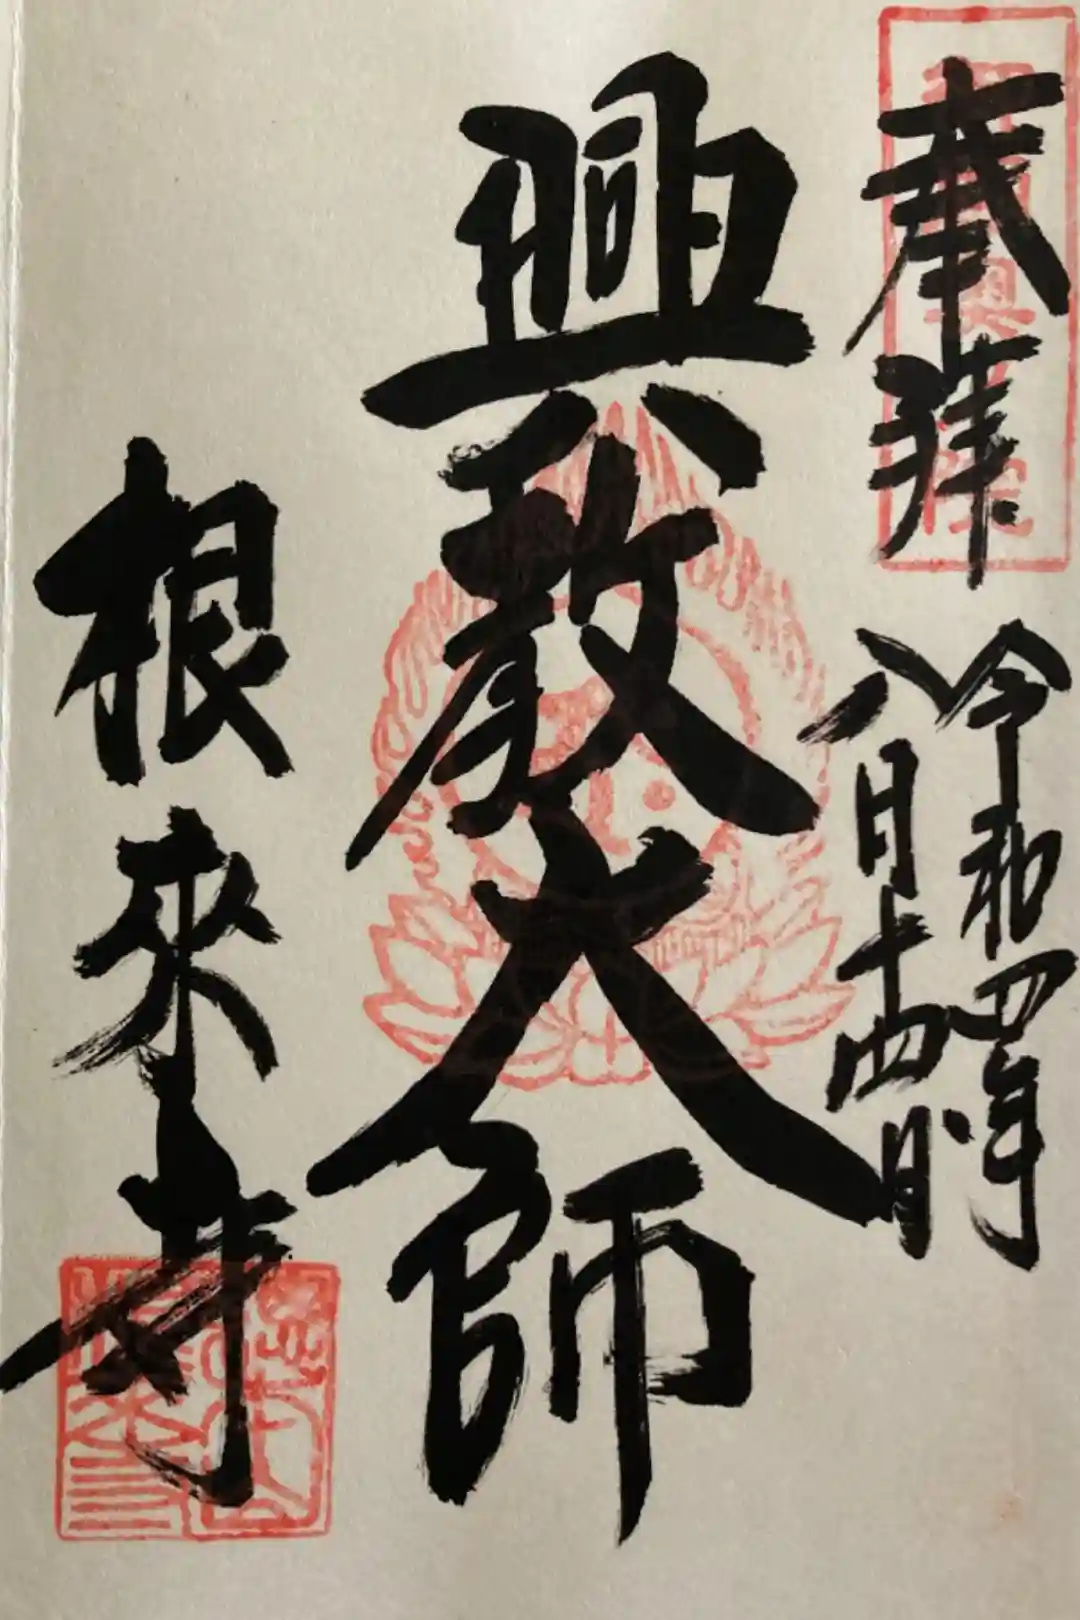 奉拝
令和四年
八月十四日
興教大師
根來寺